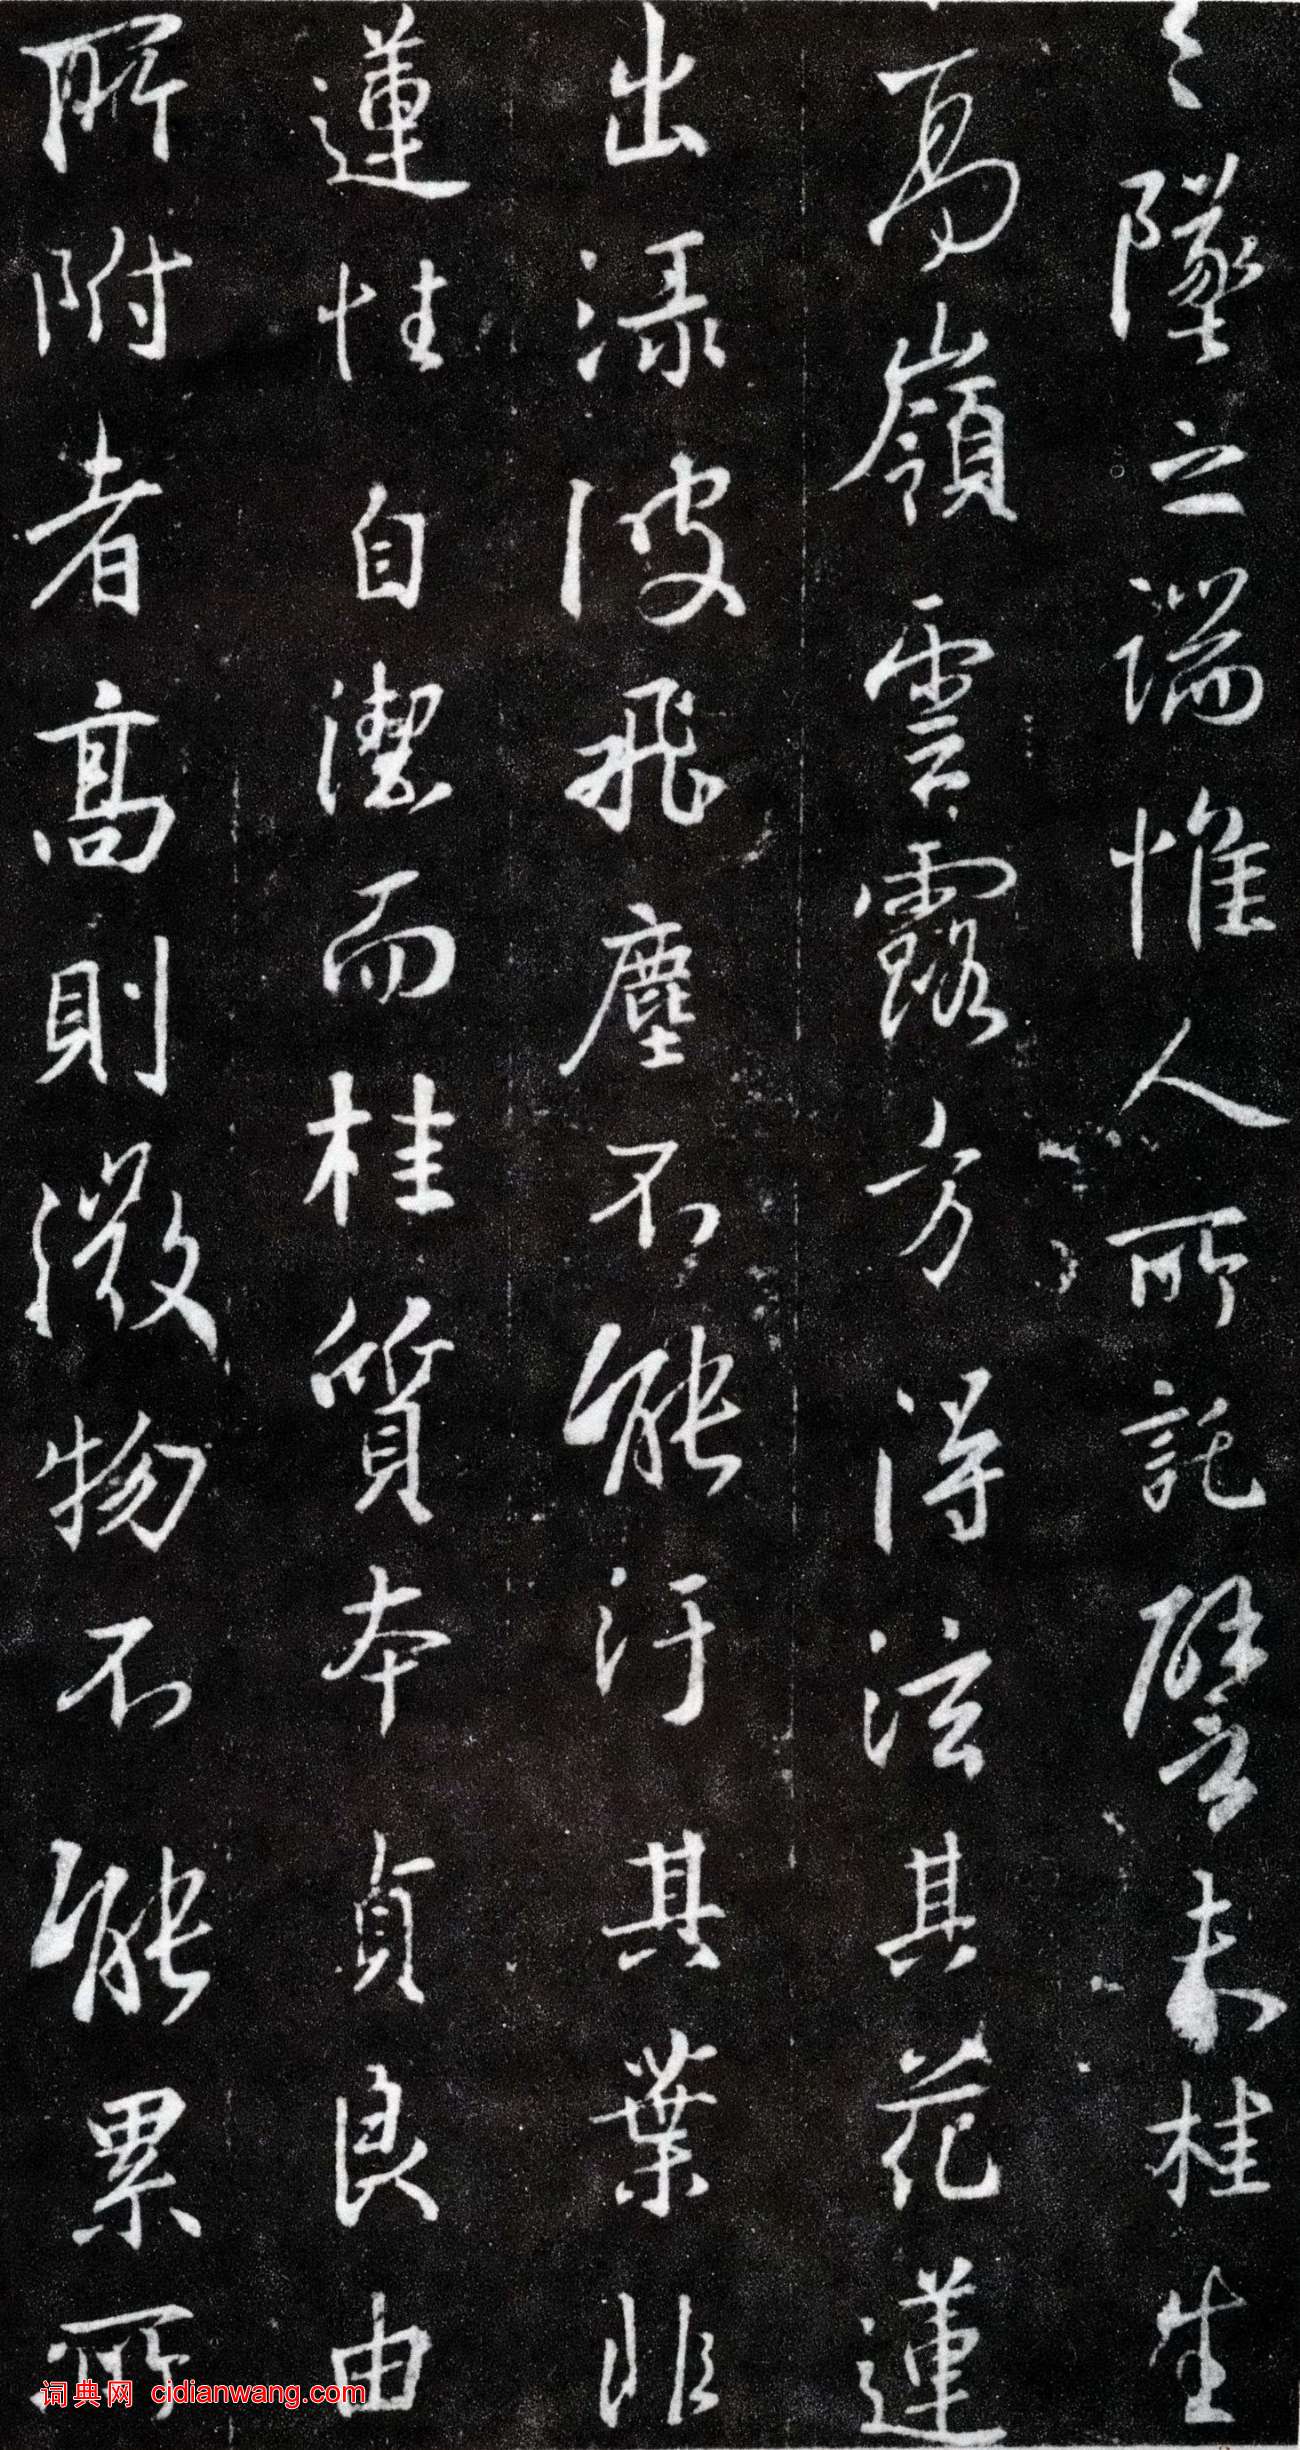 墜之端惟人所託譬夫桂生
高嶺雲露方得泫其花蓮
出淥波飛塵不能汙其葉非
蓮性自潔而桂質本貞良由
所附者高則微物不能累所
词典网 cidianwang.com